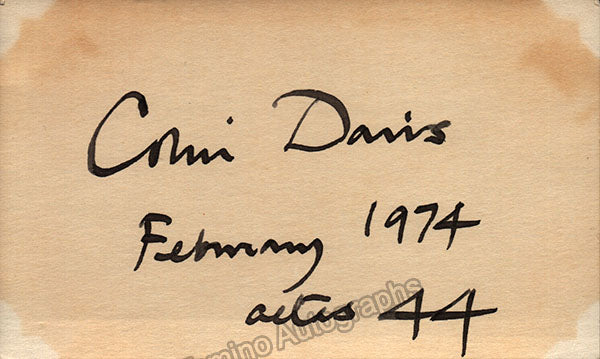 Colin Davis
February 1974
aetas 44
Tamino Autographs